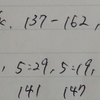 137-162,
, 5:29, 5:19,
141 147